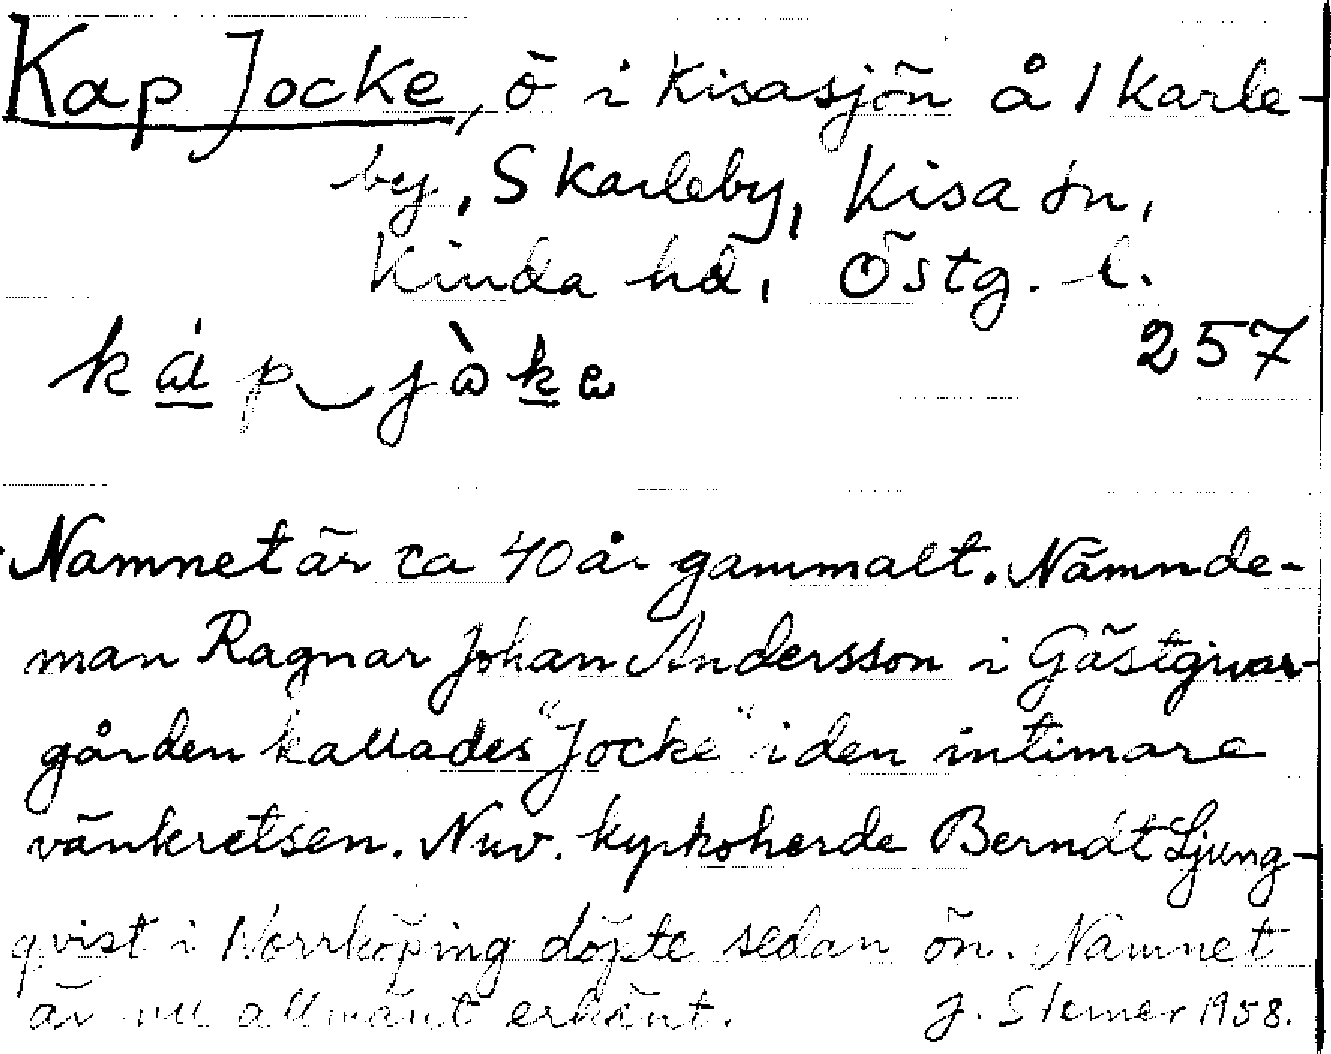 Kap Jocke, ö i Kisasjön å 1 Karle-
by, S Karleby, Kisa sn,
Kinda hd, Östg. l.
257
Namnet är ca 40 år gammalt. Nämnde-
man Ragnar Johan Andersson i Gästgivar-
gården kallades "Jocke" i den intimare
vänkretsen. Nuv. kyrkoherde Berndt Ljung-
qvist i Norrköping döpte sedan ön. Namnet
är nu allmänt erkänt. J. Sterner 1958.